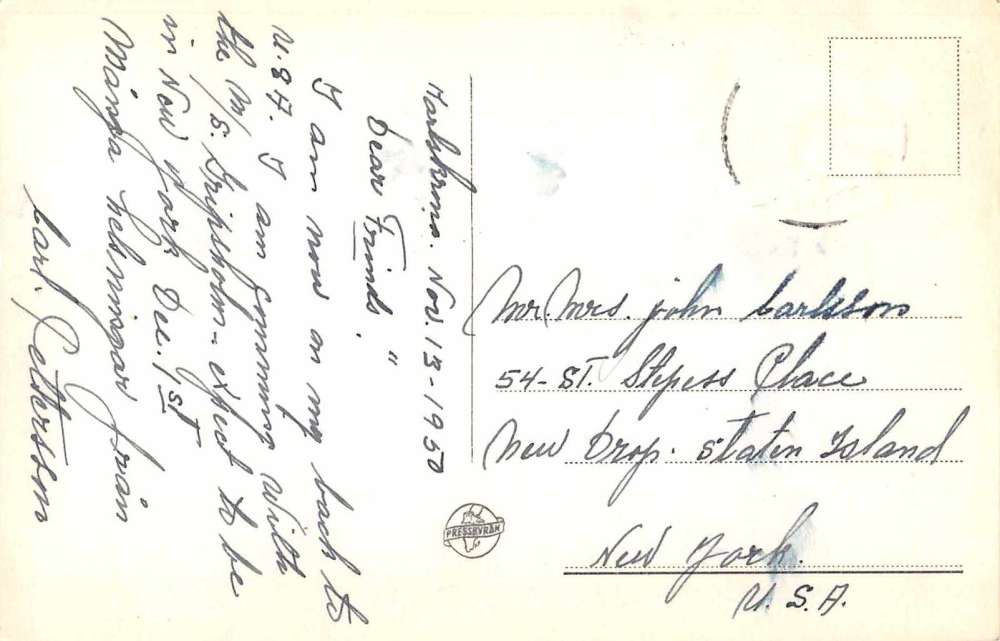 Karlskrona. Nov. 13-1950
Dear Friends.
I am now on my back to
U.S.A. I am Comming With
the M/s. Gripsholm - expect to be
in New york Dec. 1 st
Många helsningar från
Carl. Petterson
Mr. Mrs. john Carlsson
54 - ST. Stepess Place
New Drop. Staten Island
New York.
U.S.A.
PRESSBYRÅN